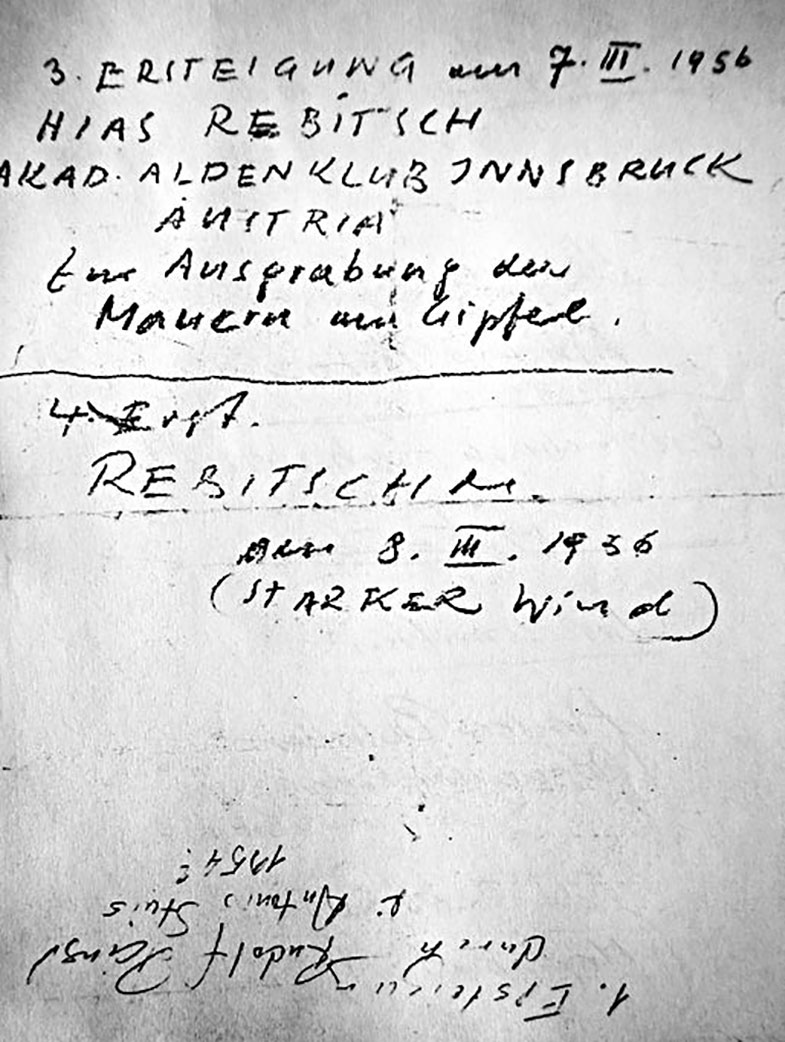 3. ERSTEIGUNG am 7. III. 1956
HIAS REBITSCH
AKAD. ALPENKLUB INNSBRUCK
AUSTRIA
Zur Ausgrabung der
Mauern am Gipfel.
4. Erst.
REBITSCH
am 8. III. 1956
(STARKER Wind)
1. Ersteigung
durch Rudolf
u. Antonio
1954?